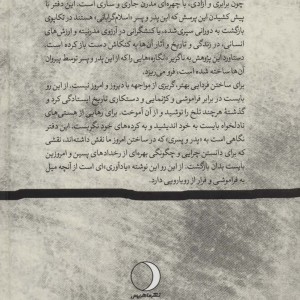 چون برابری و آزادی، با چهره‌ای مدرن جاری و ساری است. این دفتر تا
پیش کشیدن این پرسش که این پدر و پسر «اسلام‌گرایانی» هستند در تکاپوی
بازگشت به دورانی سپری‌شده، یا کنشگرانی در آرزوی مدرنیته و ارزش‌های
انسانی، در زندگی و تاریخ و آثار آن‌ها به کنکاش دست یازکرده است.
دستاورد این پژوهش به ناگزیر «انگاره‌هایی» را که از این پدر و پسر توسط پیروان
آن‌ها ساخته شده است، فرو می‌ریزد.
برای ساختن فردایی بهتر، گریزی از مواجهه با دیروز و امروز نیست. از این رو
بایست در برابر فراموشی و کژنمایی و دستکاری تاریخ ایستادگی کرد و
گذشتهٔ هرچند تلخ را نوشید و از آن آموخت. برای رهایی از هستی‌های
نادلخواه بایست به خود اندیشید و به کرده‌های خود نگریست. این دفتر
نگاهی است به «پدر و پسری» که در ساختن امروز ما نقش داشته‌اند، نقشی
که برای دانستن چرایی و چگونگی بهره‌ای از رخدادهای پسین و امروزین
بایست بدان بازگشت. از این رو این نوشته «یادآوری»‌ای است از آنچه میل
به فراموشی و فرار از رویارویی دارد.